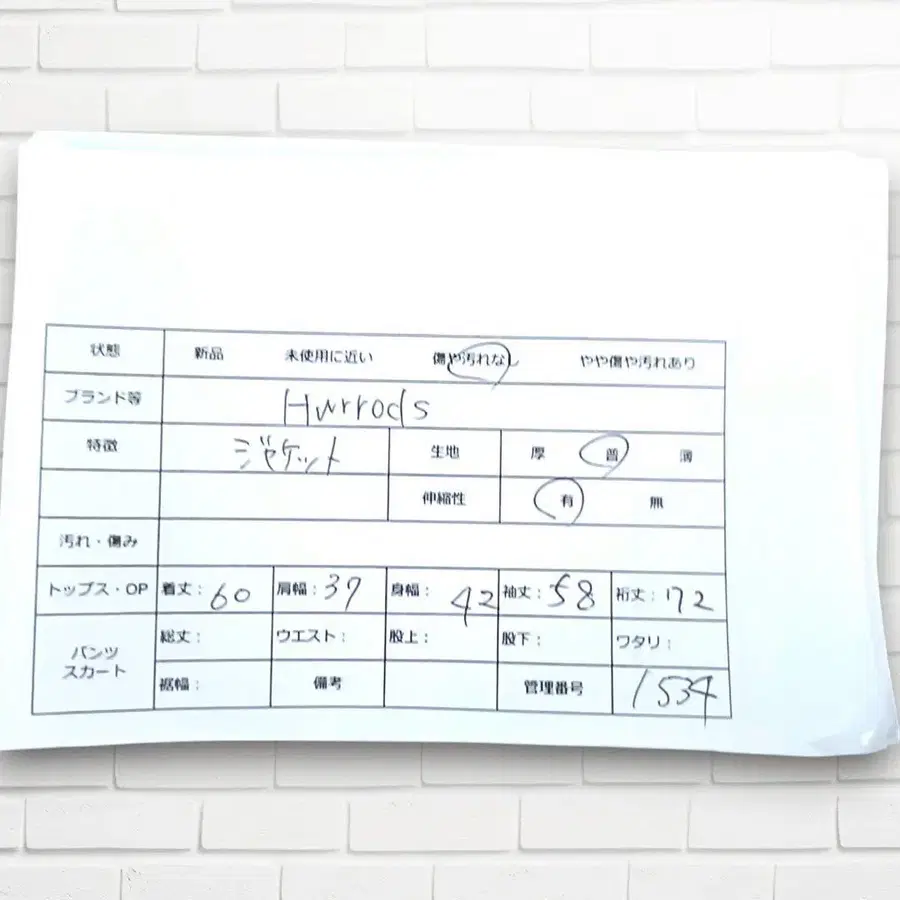 状態 新品 未使用に近い 傷や汚れなし やや傷や汚れあり
ブランド等 Hurrods
特徴 ジャケット 生地 厚 普 薄
伸縮性 有 無
汚れ・傷み
トップス・OP 着丈: 60 肩幅: 37 身幅: 42 袖丈: 58 裄丈: 72
パンツ スカート 総丈: ウエスト: 股上: 股下: ワタリ:
裾幅: 備考 管理番号 1534